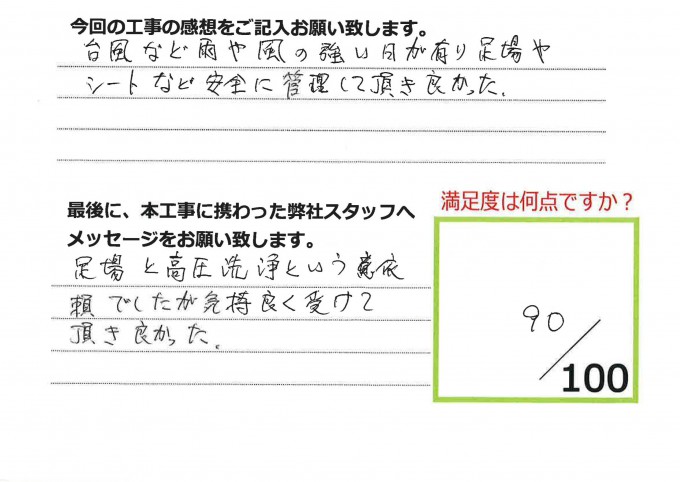 今回の工事の感想をご記入お願い致します。
台風など雨や風の強い日が有り足場や
シートなど安全に管理して頂き良かった.
最後に、本工事に携わった弊社スタッフへ
メッセージをお願い致します。
満足度は何点ですか？
足場と高圧洗浄という依
頼でしたが気持良く受けて
頂き良かった.
90
/100